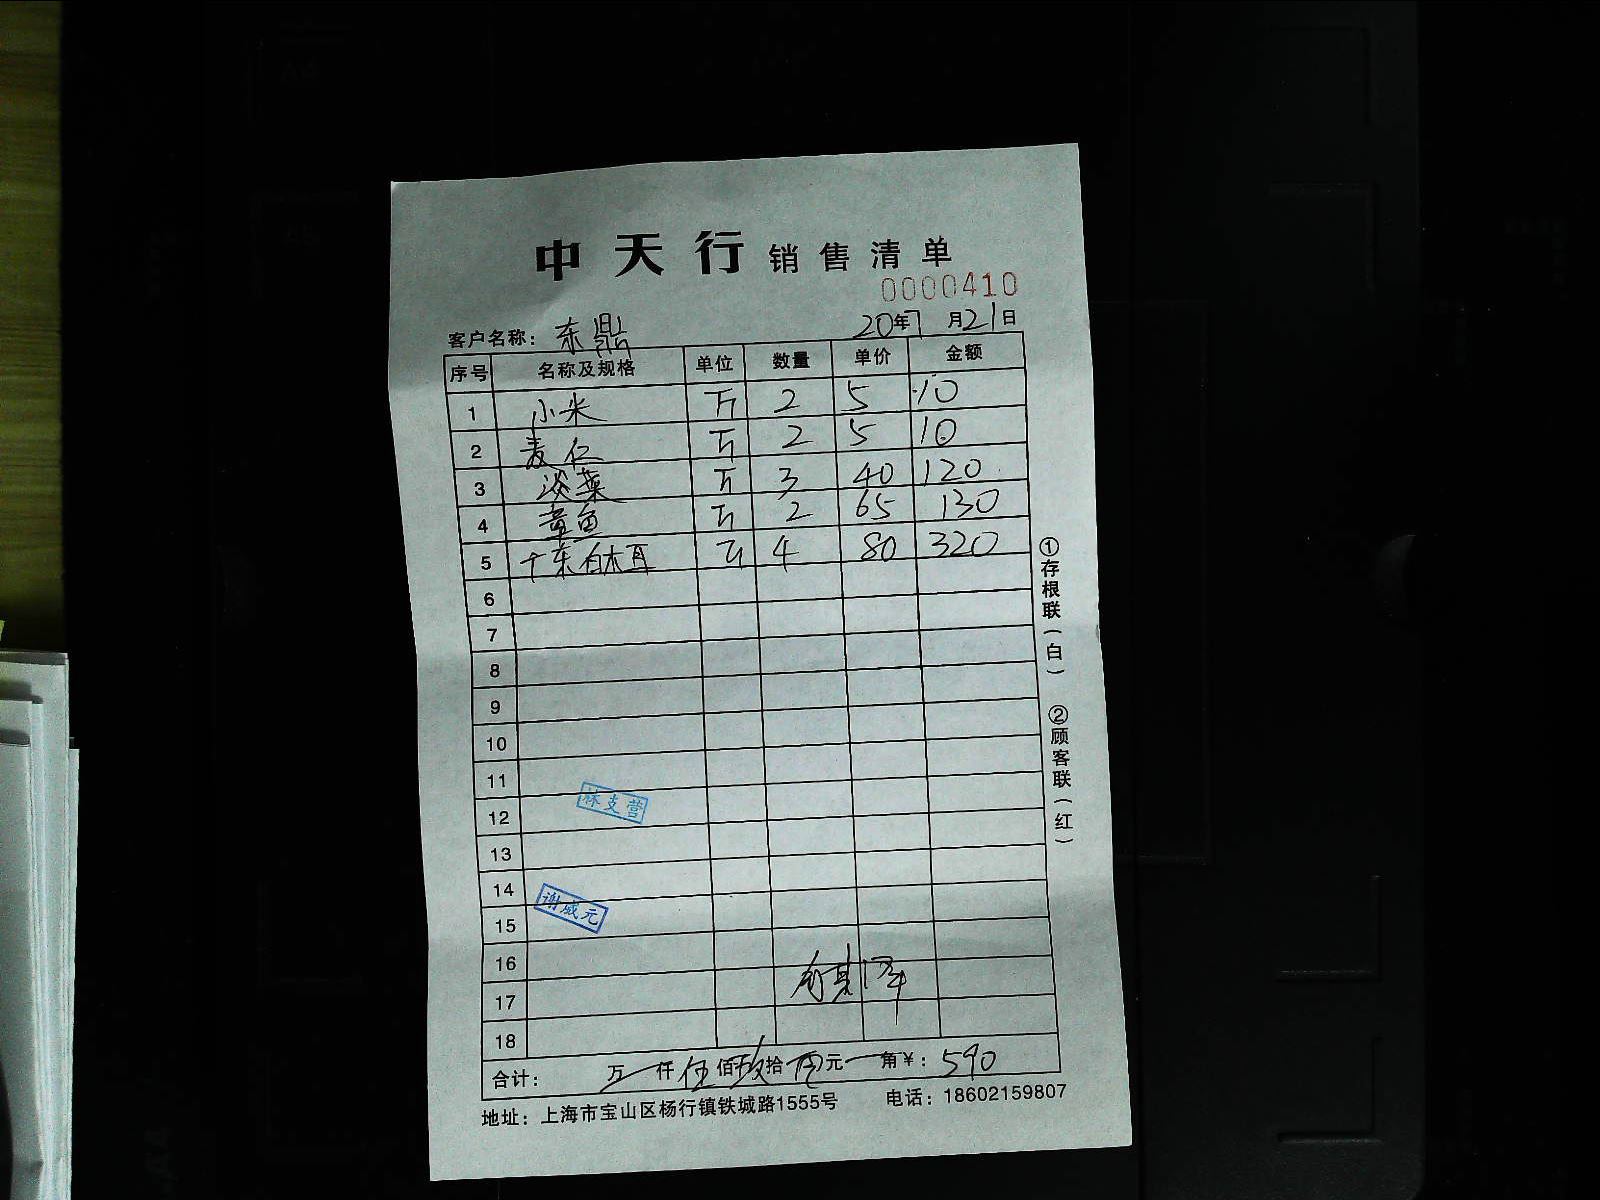 中天行 销售清单
0000410
客户名称：东鼎 20年7月21日
序号 名称及规格 单位 数量 单价 金额
1 小米 斤 2 5 10
2 麦仁 斤 2 5 10
3 淡菜 斤 3 40 120
4 章鱼 斤 2 65 130
5 白木耳 斤 4 80 320
6
7
8
9
10
11
12
林支营
13
14
15
谢威元
16
17
18
合计： 万 仟 伍 佰 玖 拾 元 角 ￥：590
地址：上海市宝山区杨行镇铁城路1555号 电话：18602159807
①存根联（白） ②顾客联（红）